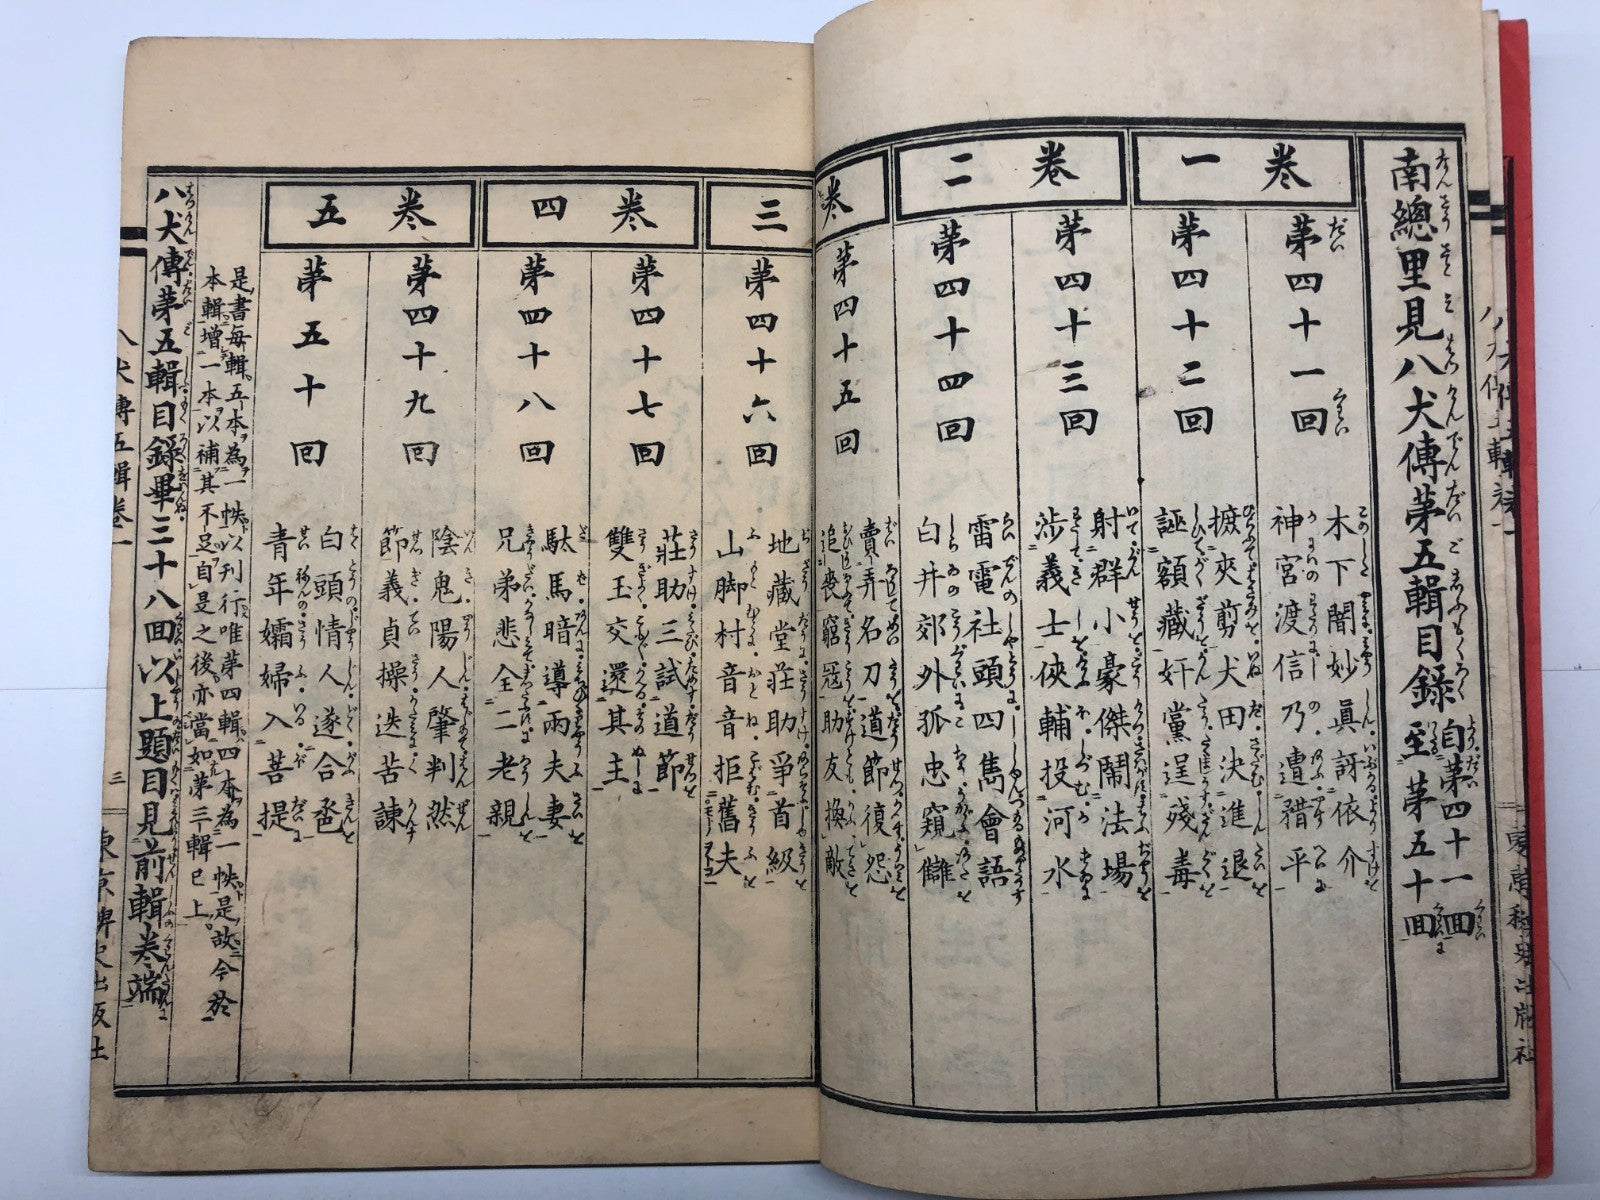 南總里見八犬傳第五輯目録 自第四十一回 至第五十回
卷一
第四十一回
木下闇妙眞訝依介
神宮渡信乃遭猎平
第四十二回
摭夾剪犬田決進退
誣額藏奸黨逞殘毒
第四十三回
射群小豪傑鬧法場
渉義士侠輔投河水
卷二
第四十四回
雷電社頭四雋會語
白井郊外狐忠窺讐
第四十五回
賣弄名刀道節復怨
追喪窮寇助友換敵
卷三
第四十六回
地藏堂莊助爭首級
山脚村音音拒舊夫
第四十七回
莊助三試道節
雙玉交還其主
卷四
第四十八回
駄馬暗導兩夫妻
兄弟悲全二老親
第四十九回
陰鬼陽人肇判然
節義貞操迭苦諫
卷五
第五十回
白頭情人遂合卺
青年孀婦入菩提
是書毎輯五本為一帙以刊行唯第四輯四本為一帙是故今於
本輯増一本以補其不足自是之後亦當如第三輯已上
八犬傳第五輯目録畢三十八回以上題目見前輯卷端
八犬傳五輯卷一
三
東京稗史出版社